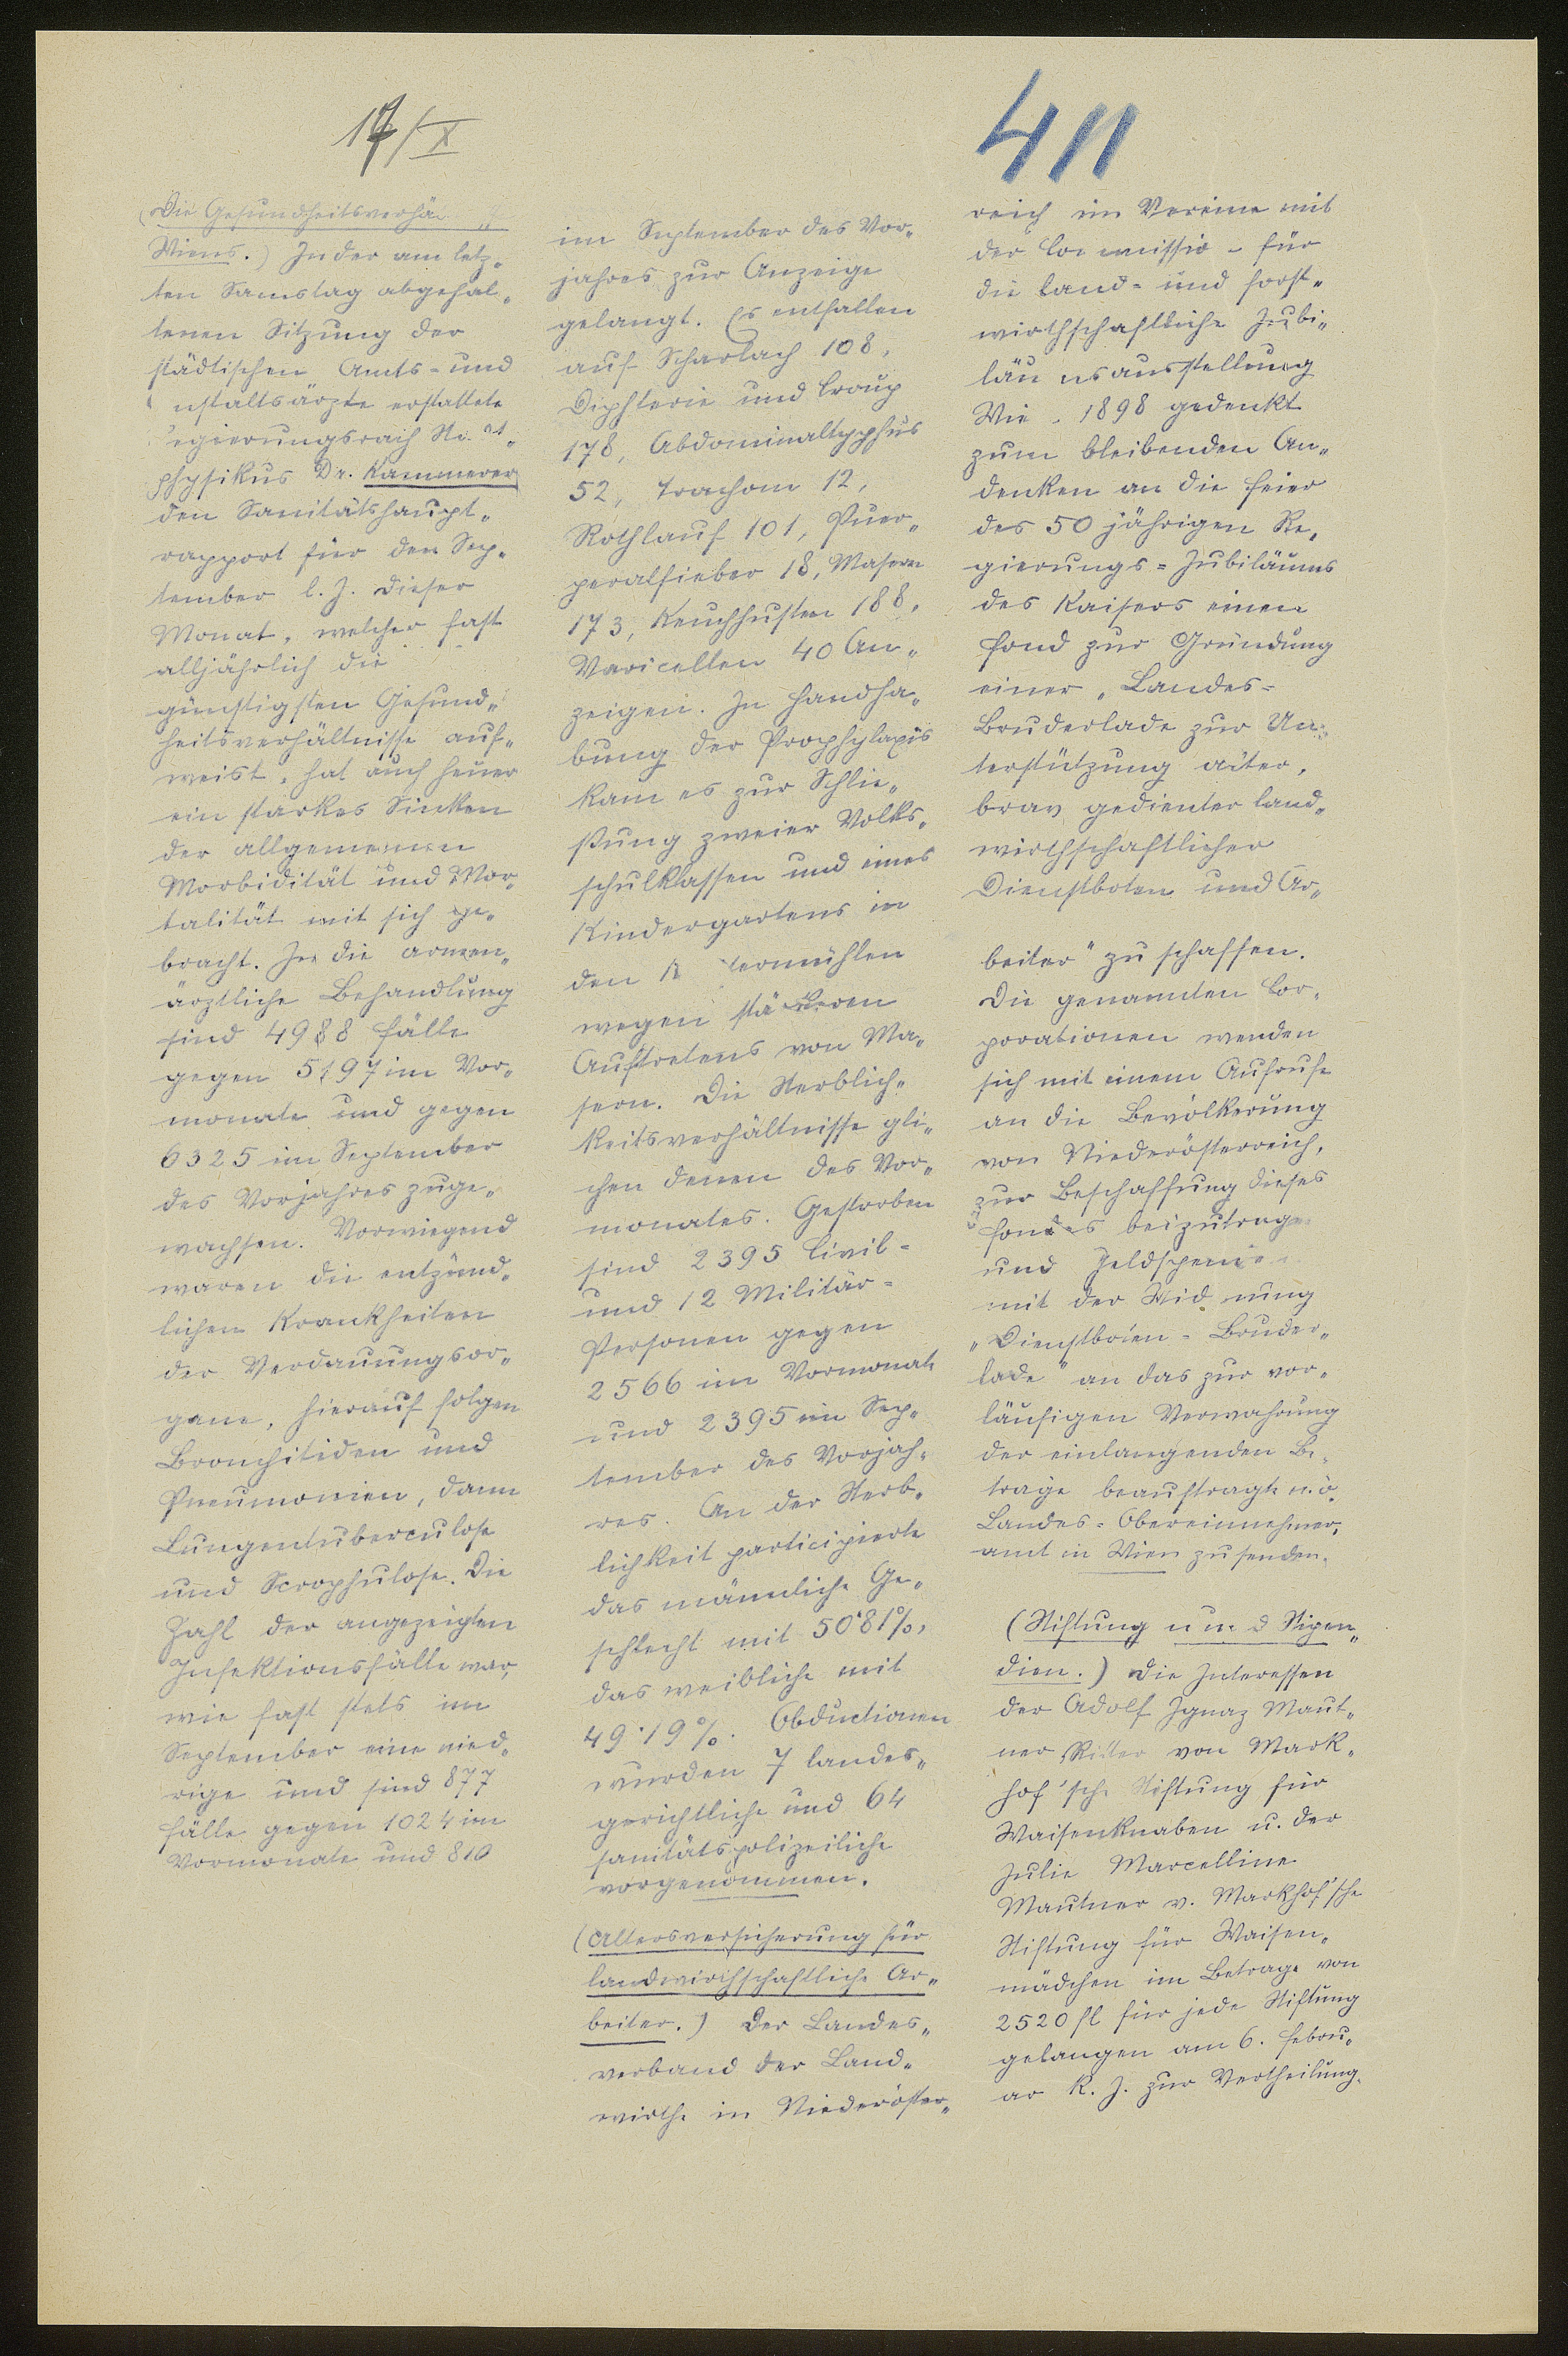 14/X
411
(Die Gesundheitsverhä
Wiens.) In der am letz-
ten Samstag abgehal-
tenen Sitzung der
städtischen Amts- und
nstaltsärzte erstattete
egierungsrath
physikus Dr. Kammerer
den Sanitätshaupt-
rapport für den Sep-
tember l. J. Dieser
Monat, welcher fast
alljährlich die
günstigsten Gesund-
heitsverhältnisse auf-
weist, hat auch heuer
ein starkes Sinken
der allgemeinen
Morbidität und Mor-
talität mit sich ge-
bracht. In die armen-
ärztliche Behandlung
sind 4988 Fälle
gegen 5197 im Vor-
monate und gegen
6325 im September
des Vorjahres zuge-
wachsen. Vorwiegend
waren die entzünd-
lichen Krankheiten
der Verdauungsor-
gane, hierauf folgen
Bronchitiden und
Pneumonien, dann
Lungentuberculose
und Scrophulose. Die
Zahl der angezeigten
Infektionsfälle war,
wie fast stets im
September eine nied-
rige und sind 877
Fälle gegen 1024 im
Vormonate und 810
im September des Vor-
jahres zur Anzeige
gelangt. Es entfallen
auf Scharlach 108,
Diphterie und Croup
178, Abdominaltyphus
52, Trachom 12,
Rothlauf 101, Puer-
peralfieber 18, Masern
173, Keuchhusten 188,
Varicellen 40 An-
zeigen. In Handha-
bung der Prophylaxis
kam es zur Schlie-
ßung zweier Volks-
schulklassen und eines
Kindergartens in
den K termühlen
wegen stärkeren
Auftretens von Ma-
sern. Die Sterblich-
keitsverhältnisse gli-
chen denen des Vor-
monates. Gestorben
sind 2395 Civil-
und 12 Militär-
Personen gegen
2566 im Vormonate
und 2395 im Sep-
tember des Vorjah-
res. An der Sterb-
lichkeit participierte
das männliche Ge-
schlecht mit 50·81%,
das weibliche mit
49·19%. Obductionen
wurden 7 landes-
gerichtliche und 64
sanitätspolizeiliche
vorgenommen.
(Altersversicherung für
landwirthschaftliche Ar-
beiter.) Der Landes-
verband der Land-
wirthe in Niederöster-
reich im Vereine mit
der Commissio- für
die land- und forst-
wirthschaftliche Jubi-
läu nsausstellung
Wie- 1898 gedenkt
zum bleibenden An-
denken an die Feier
des 50 jährigen Re-
gierungs-Jubiläums
des Kaisers einen
Fond zur Gründung
einer „Landes-
Bruderlade zur Un-
terstützung alter,
brav gedienter land-
wirthschaftlicher
Dienstboten und Ar-
beiter" zu schaffen.
Die genannten Cor-
porationen wenden
sich mit einem Aufrufe
an die Bevölkerung
von Niederösterreich,
zur Beschaffung dieses
Fondes beizutrage
und Geldspen
mit der Widmung
„Dienstboten-Bruder-
lade" an das zur vor-
läufigen Verwahrung
der einlangenden Be-
träge beauftragte n.ö.
Landes-Obereinnehmer-
amt in Wien zu senden.
(Stiftung und Stipen-
dien.) Die Interessen
der Adolf Ignaz Maut-
ner Ritter von Mark-
hof'sche Stiftung für
Waisenknaben u. der
Julie Marcelline
Mautner v. Markhof'sche
Stiftung für Waisen-
mädchen im Betrage von
2520 fl für jede Stiftung
gelangen am 6. Febru-
ar k. J. zur Vertheilung.